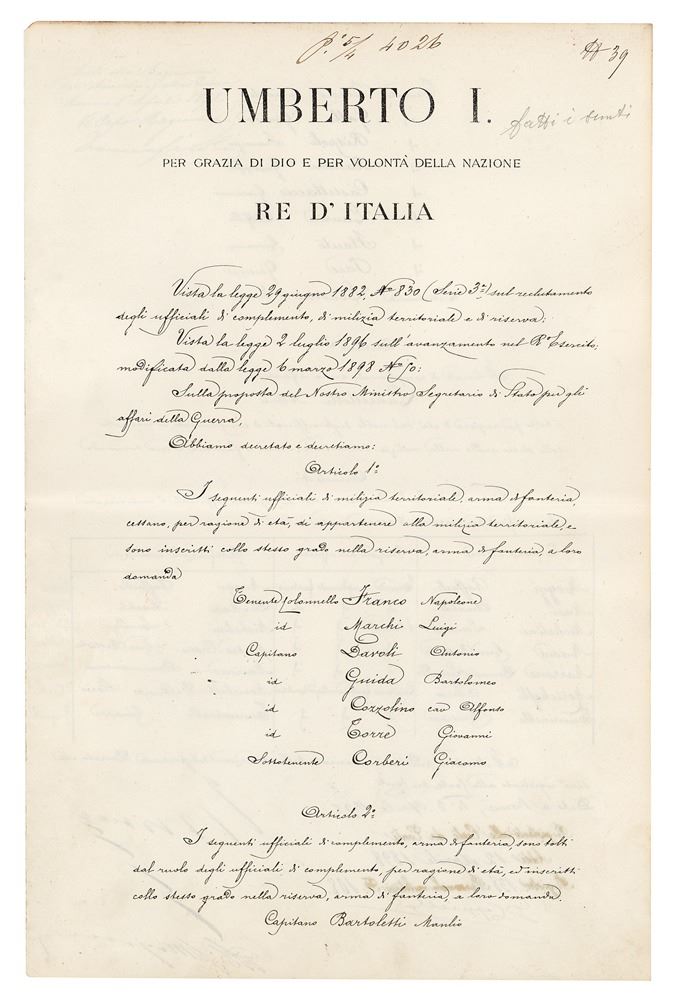 4026
39
UMBERTO I.
fatti i sunti
PER GRAZIA DI DIO E PER VOLONTÀ DELLA NAZIONE
RE D'ITALIA
Vista la legge 29 giugno 1882, Nº 830 (Serie 3ª) sul reclutamento
degli ufficiali di complemento, di milizia territoriale e di riserva;
Vista la legge 2 luglio 1896 sull'avanzamento nel Rº Esercito,
modificata dalla legge 6 marzo 1898 Nº 50:
Sulla proposta del Nostro Ministro Segretario di Stato per gli
affari della Guerra,
Abbiamo decretato e decretiamo:
Articolo 1º
I seguenti ufficiali di milizia territoriale, arma di fanteria,
cessano, per ragione di età, di appartenere alla milizia territoriale, e
sono inscritti collo stesso grado nella riserva, arma di fanteria, a loro
domanda
Tenente Colonnello Franco Napoleone
id Marchi Luigi
Capitano Davoli Antonio
id Guida Bartolomeo
id Cozzolino cav Alfonso
id Torre Giovanni
Sottotenente Corberi Giacomo
Articolo 2º
I seguenti ufficiali di complemento, arma di fanteria, sono tolti
dal ruolo degli ufficiali di complemento, per ragione di età, ed inscritti
collo stesso grado nella riserva, arma di fanteria, a loro domanda.
Capitano Bartoletti Manlio